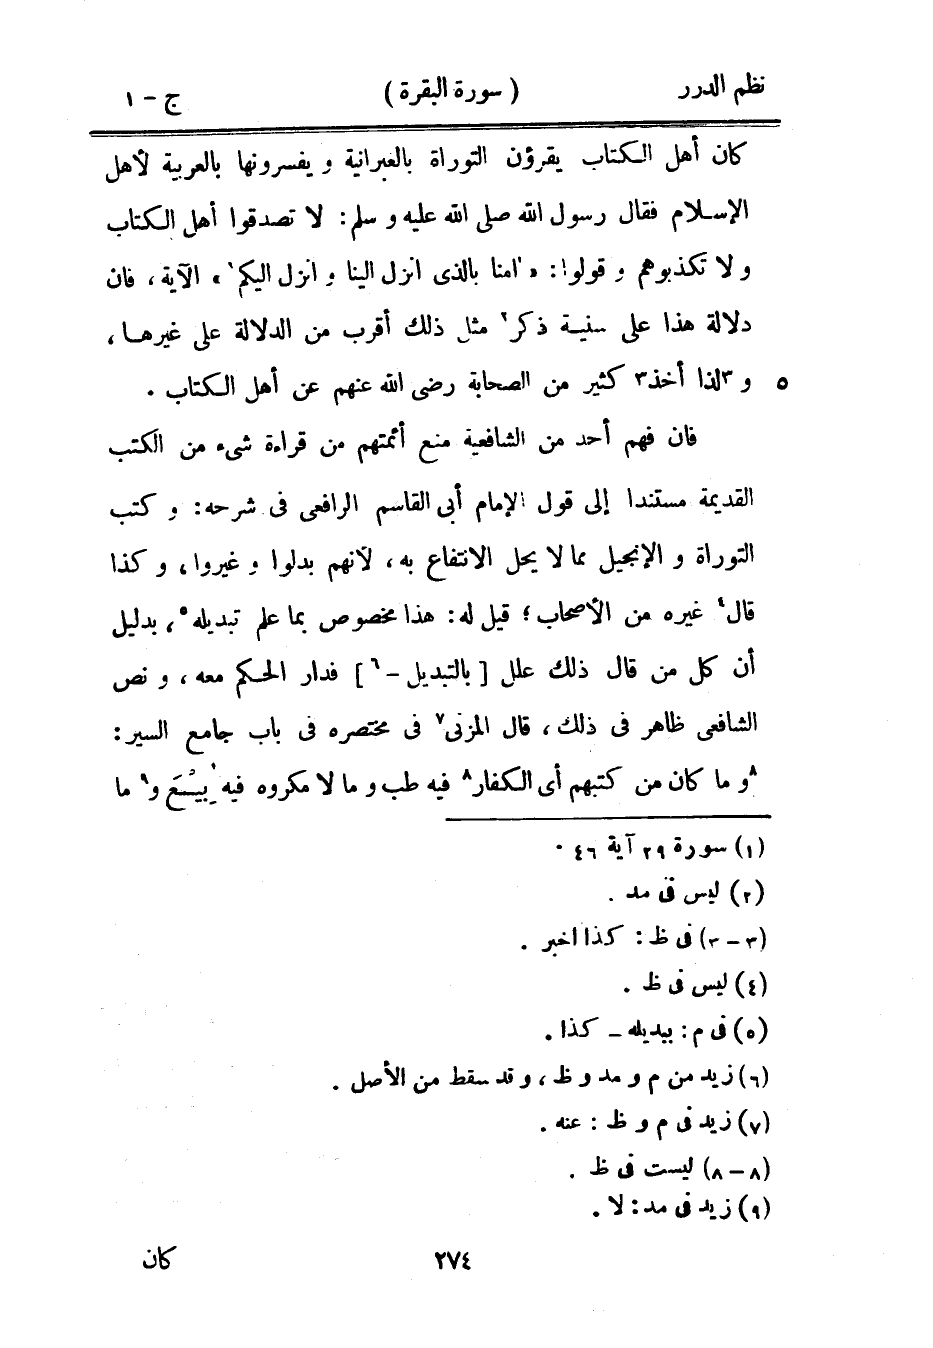 نظم الدرر ( سورة البقرة ) ج - ١
كان أهل الكتاب يقرؤن التوراة بالعبرانية و يفسرونها بالعربية لأهل
الإسلام فقال رسول الله صلى الله عليه و سلم: لا تصدقوا أهل الكتاب
و لا تكذبوهم و قولوا: «اٰمنا بالذى انزل الينا و انزل اليكم١» الآية، فان
دلالة هذا على سنية ذكر٢ مثل ذلك أقرب من الدلالة على غيرها،
٥ و ٣لذا أخذ٣ كثير من الصحابة رضى الله عنهم عن أهل الكتاب .
فان فهم أحد من الشافعية منع أئمتهم من قراءة شىء من الكتب
القديمة مستندا إلى قول الإمام أبى القاسم الرافعى فى شرحه: و كتب
التوراة و الإنجيل مما لا يحل الانتفاع به، لأنهم بدلوا و غيروا، و كذا
قال٤ غيره من الأصحاب؛ قيل له: هذا مخصوص بما علم تبديله٥، بدليل
أن كل من قال ذلك علل [ بالتبديل -٦ ] فدار الحكم معه، و نص
الشافعى ظاهر فى ذلك، قال المزنى٧ فى مختصره فى باب جامع السير:
٨و ما كان من كتبهم أى الكفار٨ فيه طب و ما لا مكروه فيه بِيْعَ و٩ ما
(١) سورة ٢٩ آية ٤٦ .
(٢) ليس فى مد .
(٣ - ٣) فى ظ : كذا اخبر .
(٤) ليس فى ظ .
(٥) فى م : ببديله - كذا .
(٦) زيد من م و مد و ظ ، و قد سقط من الأصل .
(٧) زيد فى م و ظ : عنه .
(٨ - ٨) ليست فى ظ .
(٩) زيد فى مد : لا .
٢٧٤ كان